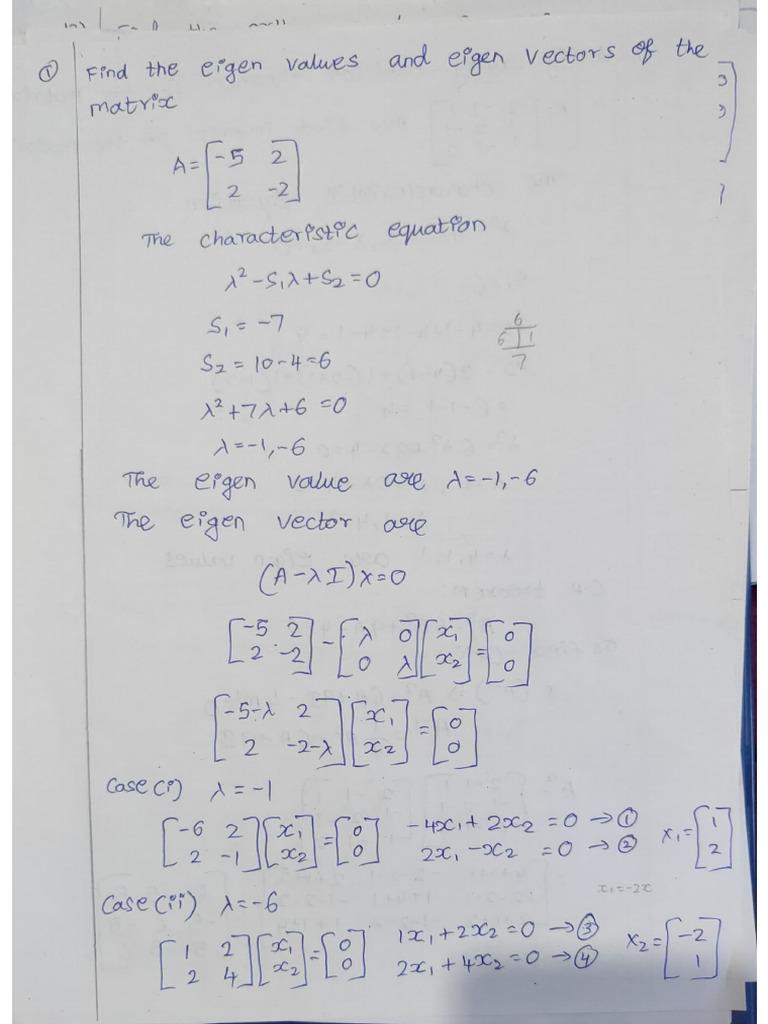 ① Find the eigen values and eigen vectors of the
matrix
A = [-5 2
2 -2]
The characteristic equation
λ² - S₁λ + S₂ = 0
S₁ = -7
S₂ = 10 - 4 = 6
λ² + 7λ + 6 = 0
λ = -1, -6
6
6 | 1
7
The eigen value are λ = -1, -6
The eigen vector are
(A - λI)x = 0
[-5 2
2 -2] - [λ 0
0 λ] [x₁
x₂] = [0
0]
[-5-λ 2
2 -2-λ] [x₁
x₂] = [0
0]
Case (i) λ = -1
[-6 2
2 -1] [x₁
x₂] = [0
0]
-4x₁ + 2x₂ = 0 → ①
2x₁ - x₂ = 0 → ②
x₁ = [1
2]
x₁ = -2x
Case (ii) λ = -6
[1 2
2 4] [x₁
x₂] = [0
0]
1x₁ + 2x₂ = 0 → ③
2x₁ + 4x₂ = 0 → ④
x₂ = [-2
1]